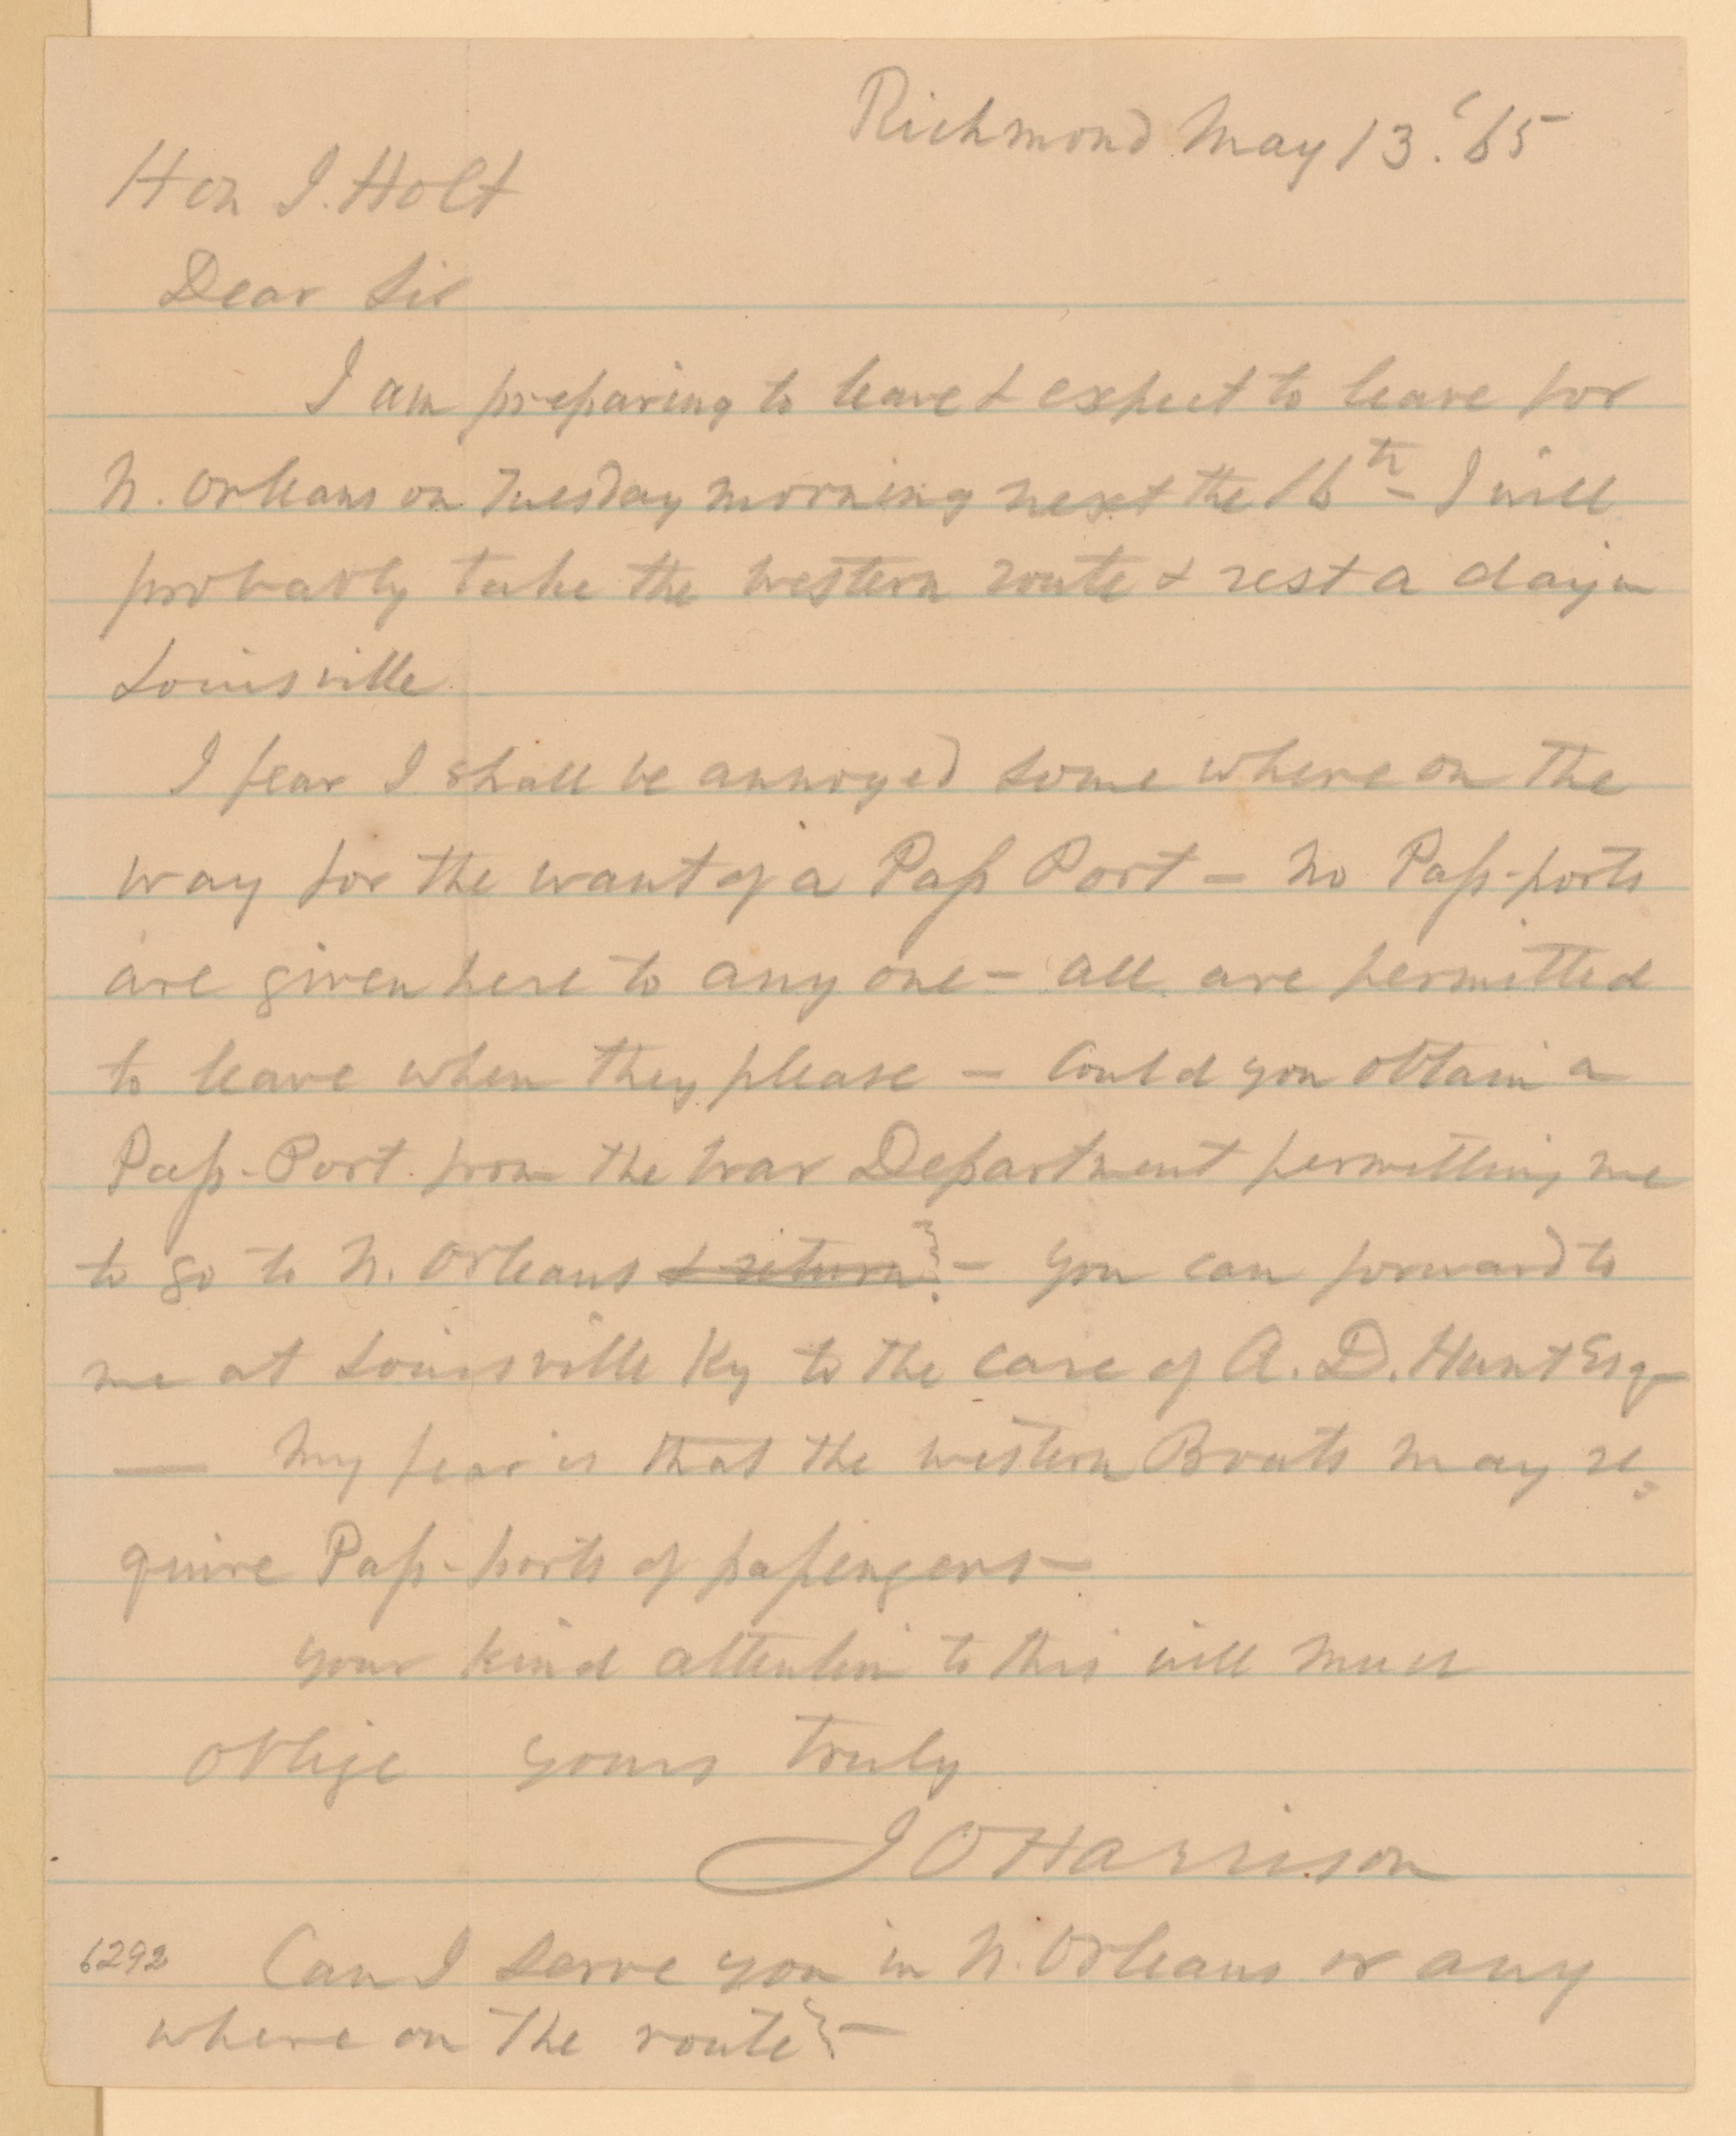 Richmond May 13. '65
Hon J. Holt
Dear Sir
I am preparing to leave & expect to leave for
N. Orleans on Tuesday morning next the 16th - I will
probably take the western route & rest a day in
Louisville.
I fear I shall be annoyed some where on the
way for the want of a Paſs Port - No Paſs-ports
are given here to any one - all are permitted
to leave when they please - Could you obtain a
Paſs-Port from the War Department permitting me
to go to N. Orleans & return? - You can forward to
me at Louisville Ky to the care of A. D. Hunt Esq
— My fear is that the western Boats may re-
quire Paſs-ports of paſsengers -
Your kind attention to this will much
oblige Yours truly
J O Harrison
6292 Can I serve you in N. Orleans or any
where on the route? -